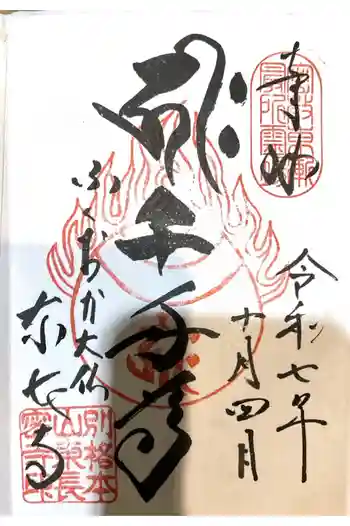 奉拝
令和七年
十月四日
千手尊
ふくおか大仏
東長寺
別格本
山東長
密寺印